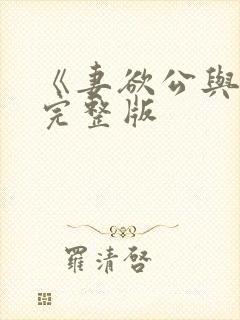 《妻欲公與
完整版
羅清啓